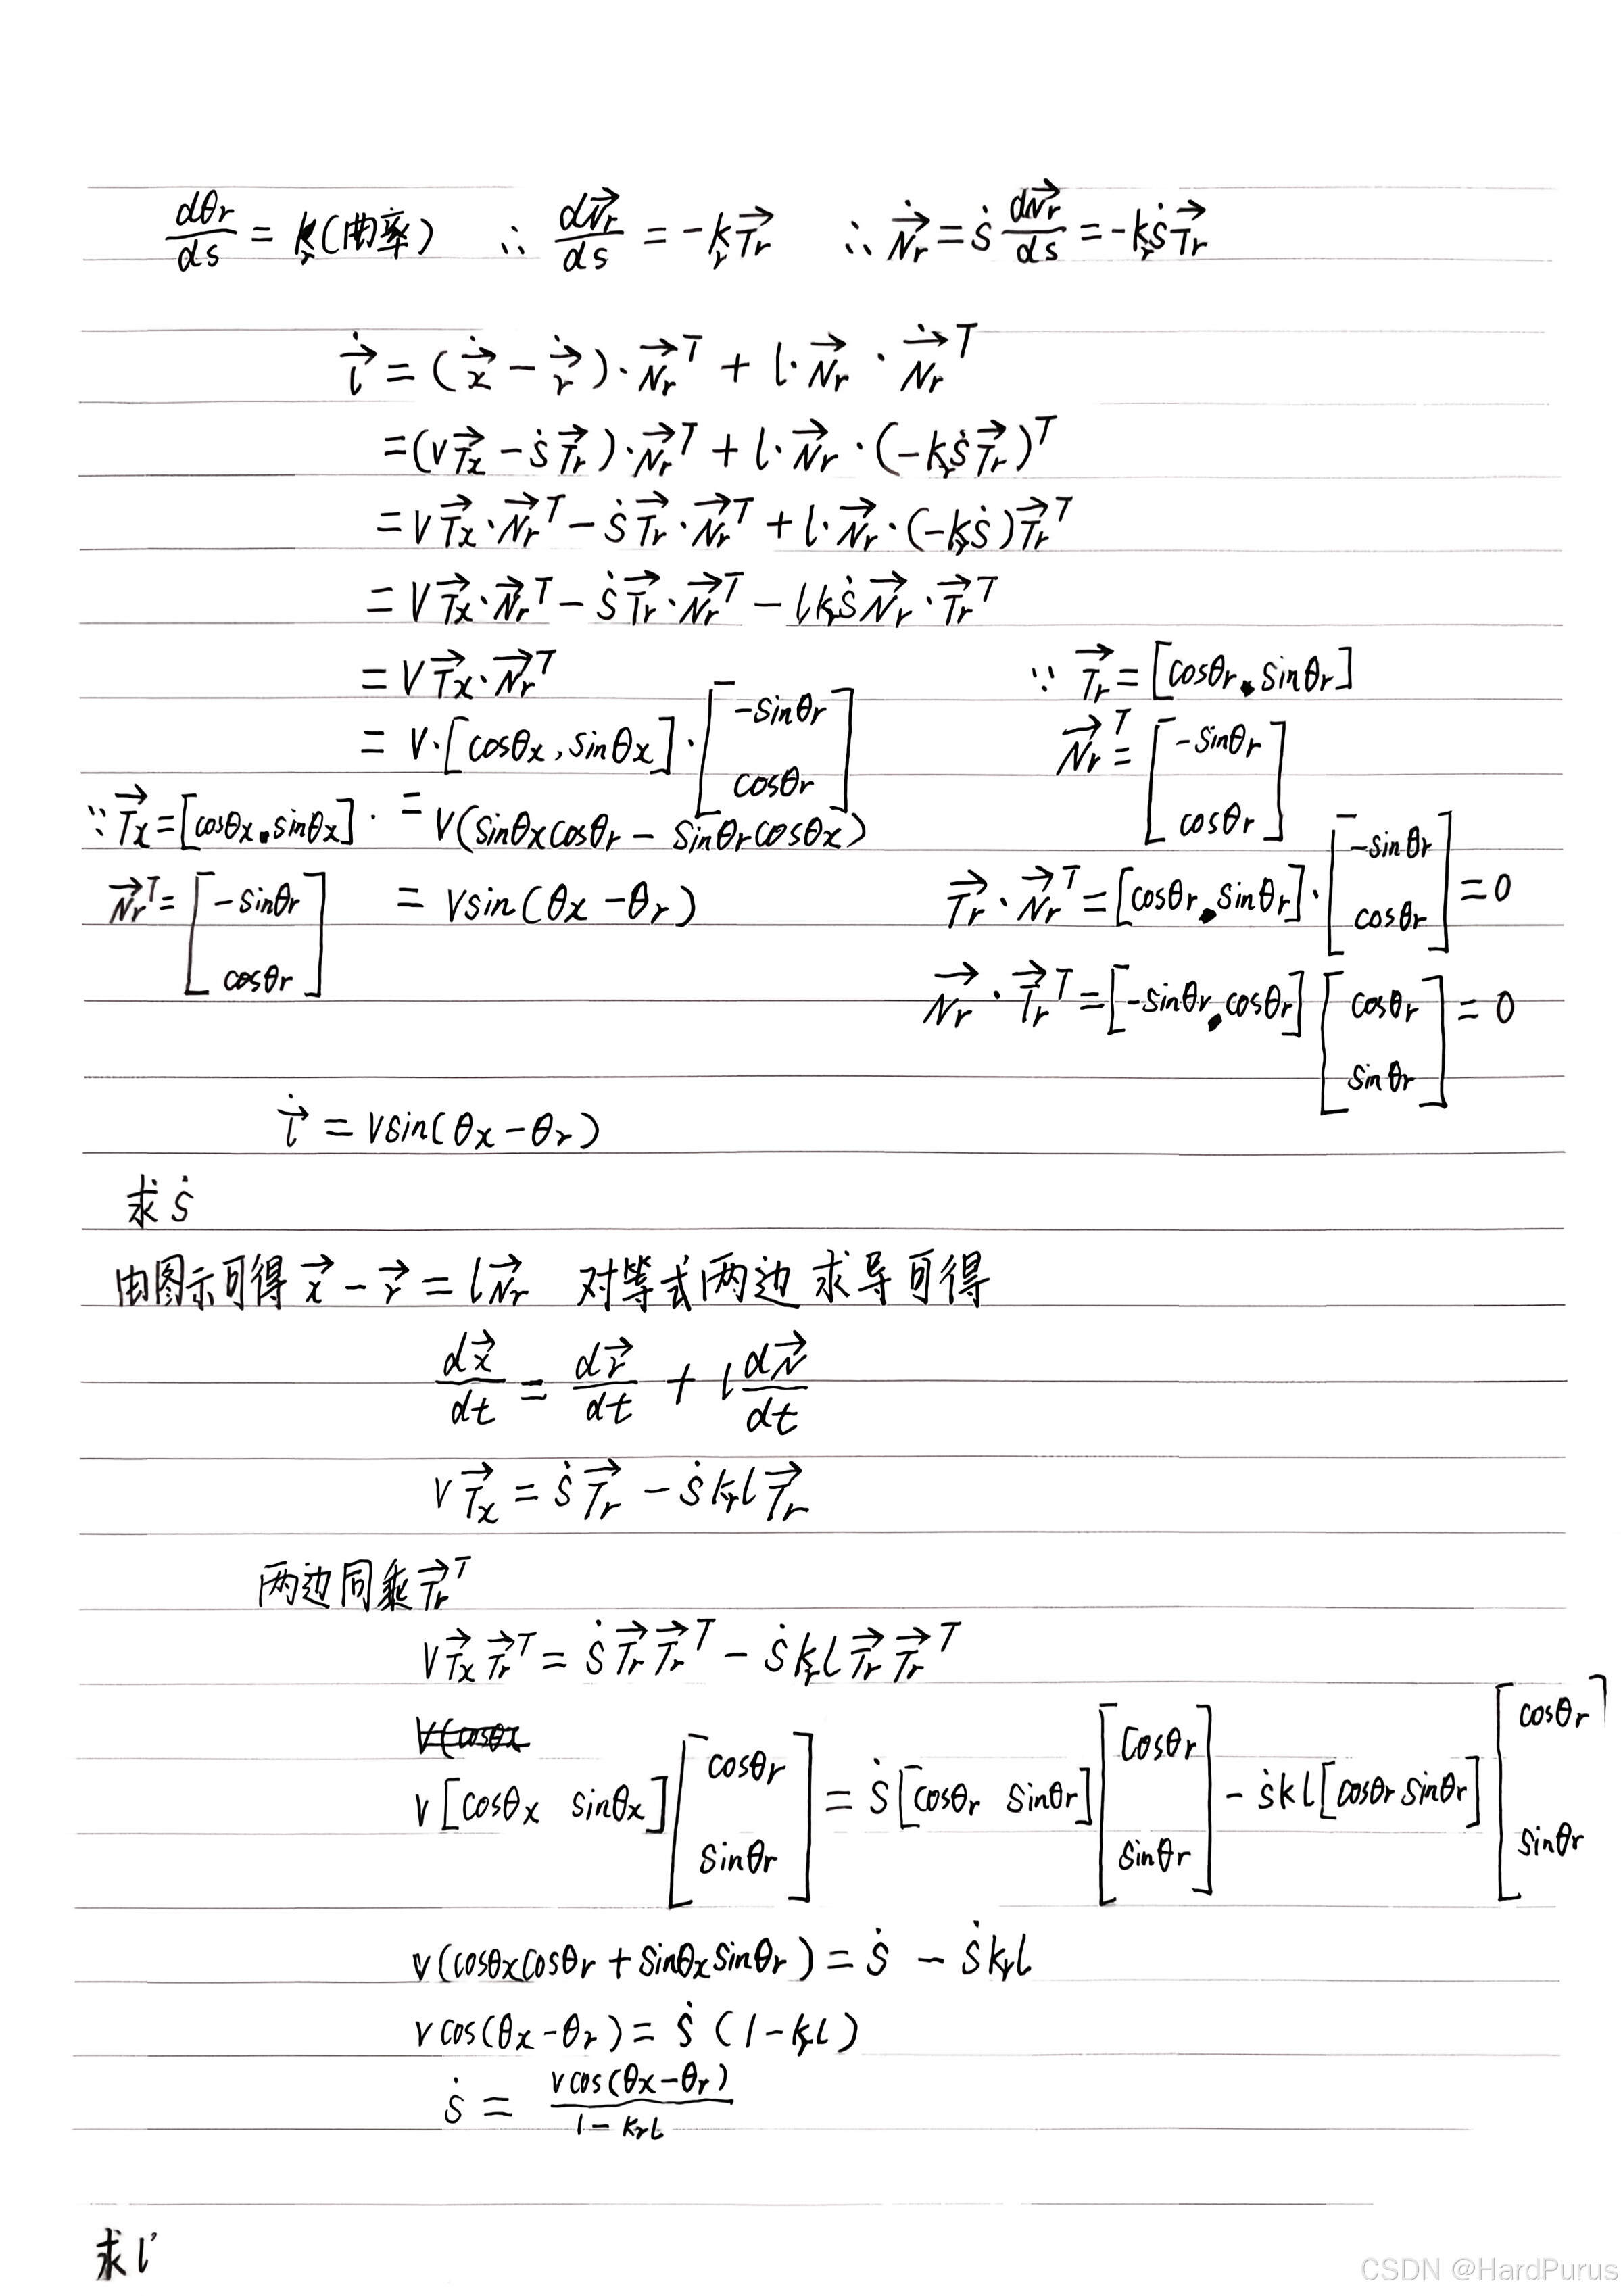 dθr/ds = kr(曲率) ∴ dN⃗r/ds = -krT⃗r ∴ N⃗̇r = ṡ dN⃗r/ds = -krṡT⃗r
l⃗̇ = (x⃗̇ - r⃗̇)·N⃗rᵀ + l·N⃗r·N⃗̇rᵀ
=(vT⃗x - ṡT⃗r)·N⃗rᵀ + l·N⃗r·(-krṡT⃗r)ᵀ
=vT⃗x·N⃗rᵀ - ṡT⃗r·N⃗rᵀ + l·N⃗r·(-krṡ)T⃗rᵀ
= vT⃗x·N⃗rᵀ - ṡT⃗r·N⃗rᵀ - lkrṡN⃗r·T⃗rᵀ
= vT⃗x·N⃗rᵀ
= v·[cosθx, sinθx]·[-sinθr cosθr]
= v(sinθxcosθr - sinθrcosθx)
= vsin(θx-θr)
∵ T⃗x=[cosθx, sinθx].
N⃗rᵀ= [-sinθr cosθr]
∵ T⃗r = [cosθr, sinθr]
N⃗rᵀ = [-sinθr cosθr]
T⃗r·N⃗rᵀ=[cosθr, sinθr]·[-sinθr cosθr]=0
N⃗r·T⃗rᵀ=[-sinθr, cosθr][cosθr sinθr] = 0
l⃗̇ = vsin(θx-θr)
求ṡ
由图示可得 x⃗ - r⃗ = lN⃗r 对等式两边求导可得
dx⃗/dt = dr⃗/dt + l dN⃗/dt
vT⃗x = ṡT⃗r - ṡkrlT⃗r
两边同乘T⃗rᵀ
vT⃗xT⃗rᵀ = ṡT⃗rT⃗rᵀ - ṡkrlT⃗rT⃗rᵀ
v(cosθx
v[cosθx sinθx][cosθr sinθr] = ṡ[cosθr sinθr][cosθr sinθr] - ṡkl[cosθr sinθr][cosθr sinθr]
v(cosθxcosθr + sinθxsinθr) = ṡ - ṡkrl
vcos(θx-θr) = ṡ(1-krl)
ṡ = vcos(θx-θr)/1-krl
求l'
CSDN @HardPurus